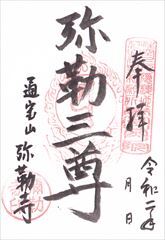 奉拝
令和二年
月 日
弥勒三尊
通宝山 弥勒寺